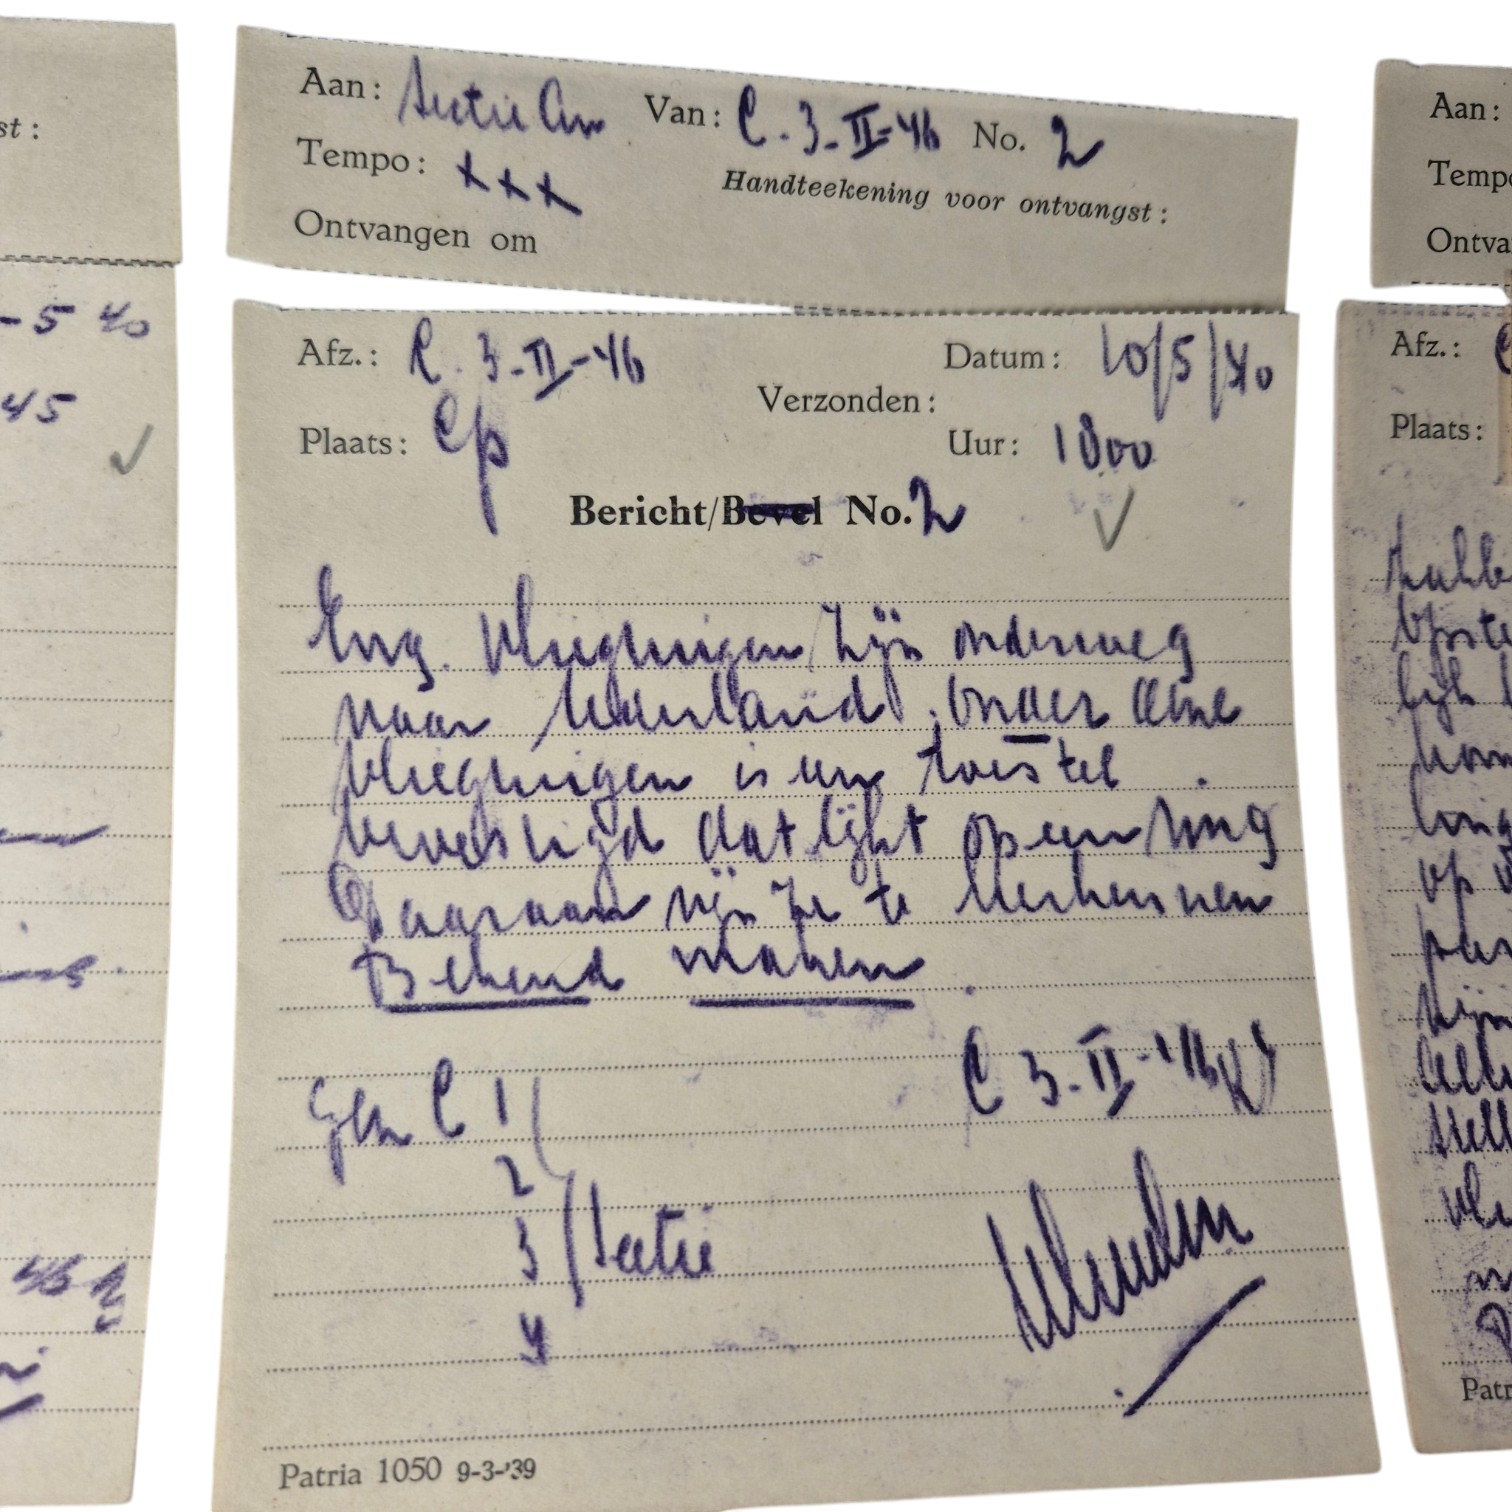 st :
-5 40
45
46
Aan: Sectie Cn Van: C.3-II-46 No. 2
Tempo: xxx
Handteekening voor ontvangst:
Ontvangen om
Afz.: C.3-II-46 Datum: 10/5/40
Verzonden:
Plaats: Cp Uur: 1800
Bericht/Bevel No. 2
Eng. vliegtuigen zijn onderweg
naar Nederland. Onder deze
vliegtuigen is een toestel
bevestigd dat lijkt op een ring
Daaraan zijn ze te herkennen
Bekend maken.
C 3-II-46 RJ
Gen C 1
2
3 Sectie
4
Patria 1050 9-3-'39
Aan:
Tempo
Ontva
Afz.:
Plaats:
op
Patr